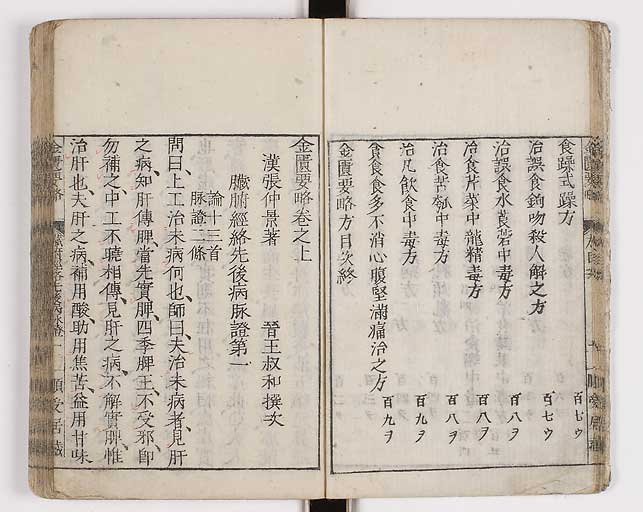 食躁式躁方
百七ウ
治誤食鉤吻殺人解之方
百七ウ
治誤食水莨菪中毒方
百八ヲ
治食芹菜中龍精毒方
百八ヲ
治食苦瓠中毒方
百八ヲ
治凡飲食中毒方
百九ヲ
貪食食多不消心腹堅滿痛治之方
百九ヲ
金匱要略方目次終
金匱要略卷之上
漢張仲景著
晉王叔和撰次
臟腑經絡先後病脉證第一
論十三首
脉證二條
問曰上工治未病何也師曰夫治未病者見肝
之病知肝傳脾當先實脾四季脾王不受邪卽
勿補之中工不曉相傳見肝之病不解實脾惟
治肝也夫肝之病補用酸助用焦苦益用甘味
金匱要略